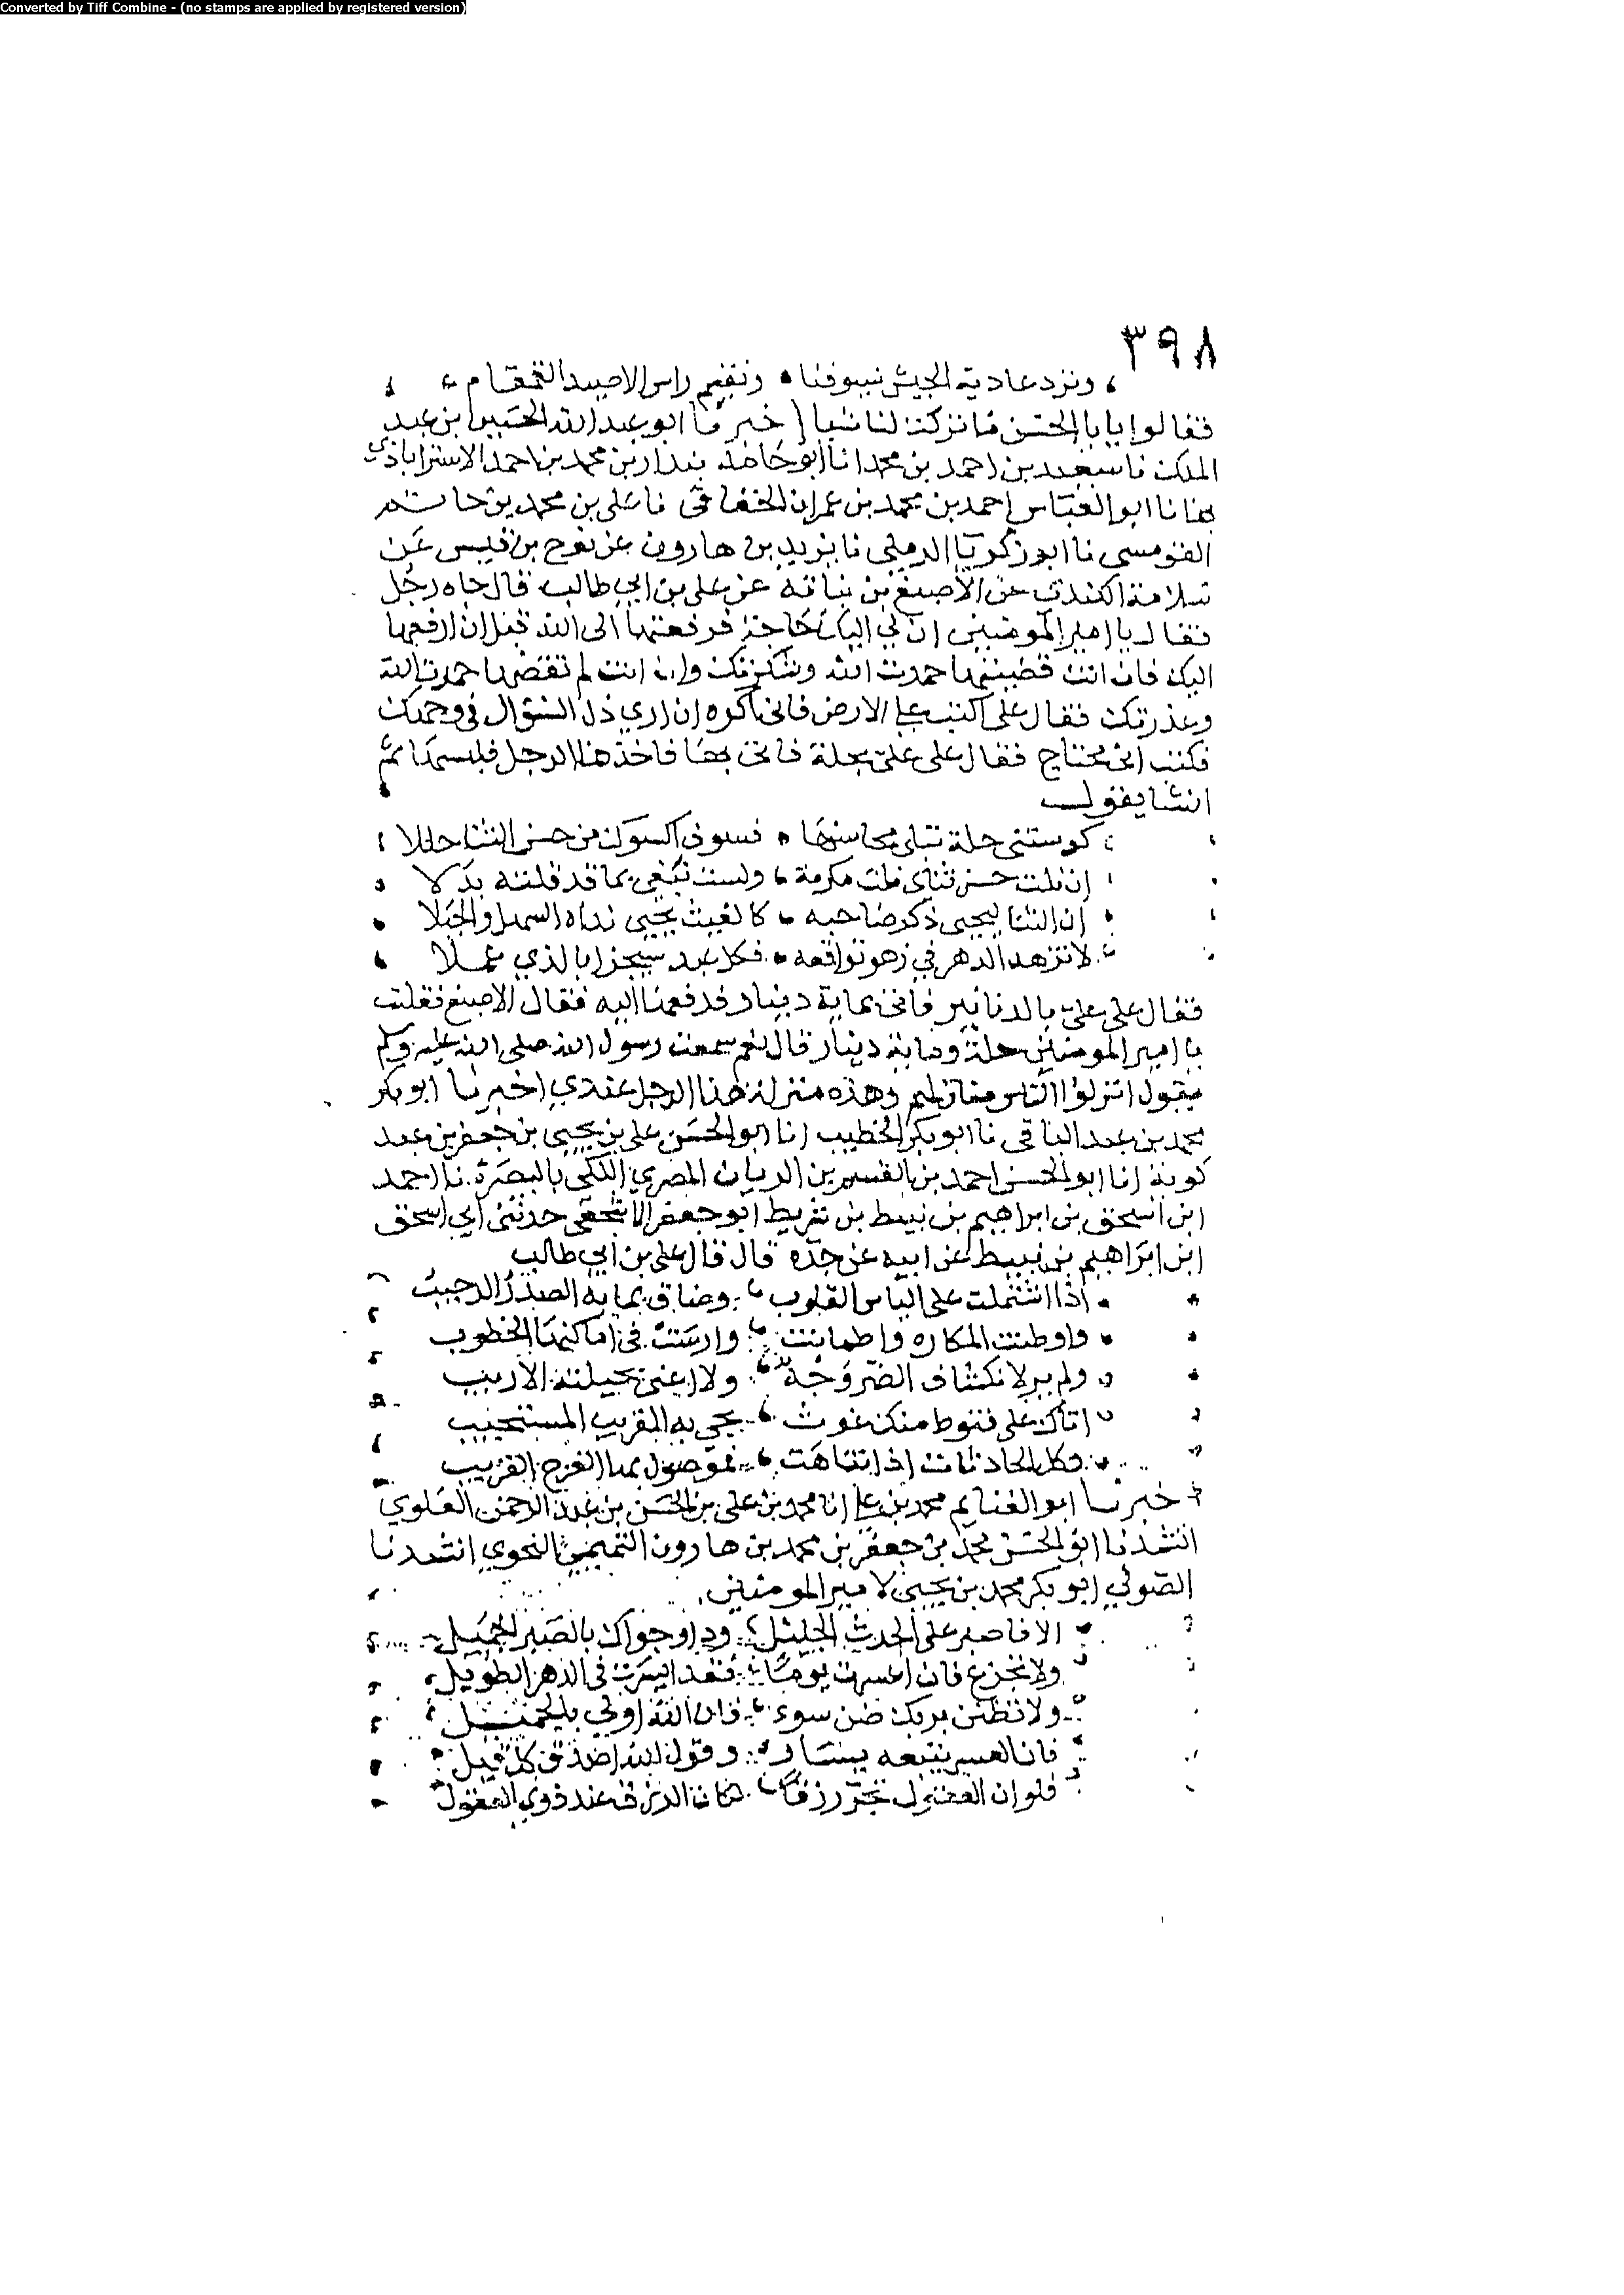 Converted by Tiff Combine - (no stamps are applied by registered version)
٣٩٨
ونرد عادية الجيش بسيوفنا ونقيم راس الاصيد القمقام
فقالوا يابا الحسن ما تركت لنا شيا اخبرنا ابو عبد الله الحسين بن عبد
الملك نا سعيد بن احمد بن محمد انا ابو حامد بندار بن محمد بن احمد الاستراباذي
بها نا ابو العباس احمد بن محمد بن عمران الخفاقي نا علي بن محمد بن حاتم
القومسي نا ابو زكريا الرملي نا يزيد بن هارون عن نوح بن قيس عن
سلامة الكندي عن الاصبغ بن نباته عن علي بن ابي طالب قال جاه رجل
فقال يا امير المومنين ان لي اليك حاجة فرفعتها الى الله قبل ان ارفعها
اليك فان انت قضيتها حمدت الله وشكرتك وان انت لم تقضها حمدت الله
وعذرتك فقال علي اكتب على الارض فاني اكره ان اري ذل السؤال في وجهك
فكتب اني محتاج فقال علي علي بحلة فاتي بها فاخذها الرجل فلبسها ثم
انشا يقول
كوستني حلة تبلى محاسنها فسوف اكسوك من حسن الثنا حللا
ان نلت حسن ثناي نلت مكرمة ولست تبغي بما قد قلته بدلا
ان الثنا ليحيى ذكر صاحبه كالغيث يحيى نداه السهل والجبلا
لا تزهد الدهر في زهو تواقعه فكل عبد سيجزا بالذي عملا
فقال علي علي بالدنانير فاتي بماية دينار فدفعها اليه فقال الاصبغ فقلت
يا امير المومنين حلة وماية دينار قال نعم سمعت رسول الله صلى الله عليه وسلم
يقول انزلوا الناس منازلهم وهذه منزلة هذا الرجل عندي اخبرنا ابو بكر
محمد بن عبد الباقي نا ابو بكر الخطيب انا ابو الحسن علي بن يحيى بن جعفر بن عبد
كوية انا ابو الحسن احمد بن القسم بن الريان المصري اللكي بالبصرة نا احمد
ابن اسحق بن ابراهيم بن نبيط بن شريط ابو جعفر الاشجعي حدثني ابي اسحق
ابن ابراهيم بن نبيط عن ابيه عن جده قال قال علي بن ابي طالب
اذا اشتملت على الياس القلوب وضاق بما به الصدر الرحيب
واوطنت المكاره واطمانت وارست في اماكنها الخطوب
ولم ير لانكشاف الضر وجه ولا اغنى بحيلته الاريب
اتاك على قنوط منك غوث يجي به القريب المستجيب
وكل الحادثات اذا تناهت فموصول بها الفرج القريب
اخبرنا ابو الغنايم محمد بن علي انا محمد بن علي بن الحسن بن عبد الرحمن العلوي
انشدنا ابو الحسن محمد بن جعفر بن محمد بن هارون التميمي النحوي انشدنا
الصولي ابو بكر محمد بن يحيى لامير المومنين
الا فاصبر على الحدث الجليل وداو جواك بالصبر الجميل
ولا تجزع فان اعسرت يوما فقد ايسرت في الدهر الطويل
ولا تظنن بربك ظن سوء فان الله اولى بالجميل
فان العسر يتبعه يسار وقول الله اصدق كل قيل
فلو ان العقول تجر رزقا لكان الرزق عند ذوي العقول